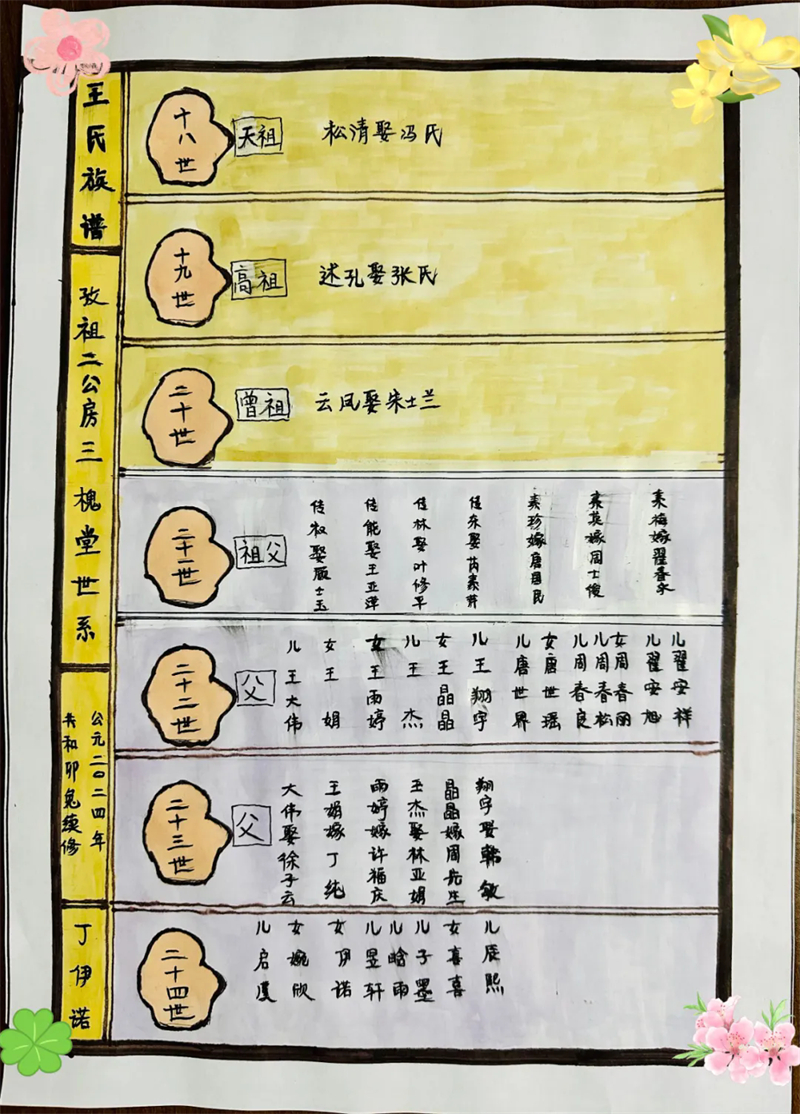 王氏族谱
孜祖二公房三槐堂世系
公元二〇二四年
共和卯兔续修
丁伊诺
十八世
天祖
松清娶冯氏
十九世
高祖
述孔娶张氏
二十世
曾祖
云凤娶朱士兰
二十一世
祖父
传权娶臧士玉
传能娶王亚萍
传林娶叶修平
传东娶芮素芹
素珍嫁唐国民
素英嫁周士俊
素梅嫁翟春永
二十二世
父
儿王大伟
女王娟
女王雨婷
儿王杰
女王晶晶
儿王翔宇
儿唐世界
女唐世瑶
儿周春良
儿周春松
女周春丽
儿翟安旭
儿翟安祥
二十三世
父
大伟娶徐子云
王娟嫁丁纯
雨婷嫁许福庆
王杰娶林亚娟
晶晶嫁周先生
翔宇娶韩敏
二十四世
儿启厦
女婉欣
女伊诺
儿昱轩
儿晗雨
儿子墨
女喜喜
儿辰熙